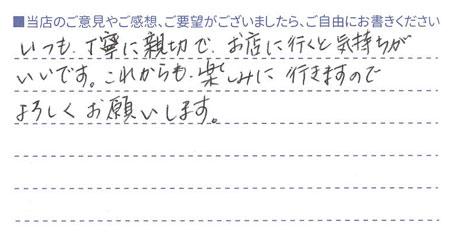 ■当店のご意見やご感想、ご要望がございましたら、ご自由にお書きください
いつも、丁寧に親切で、お店に行くと気持ちが
いいです。これからも、楽しみに行きますので
よろしくお願いします。